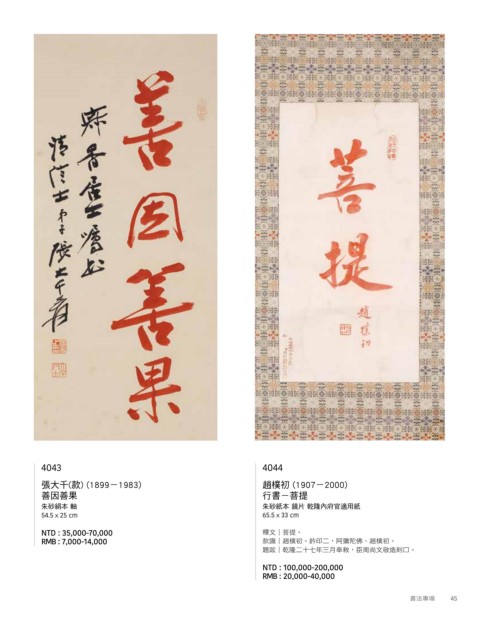 善因善果
寐香居士囑書
清信士弟子張大千爰
菩提
趙樸初
4043
張大千(款) (1899－1983)
善因善果
朱砂絹本 軸
54.5 x 25 cm
NTD : 35,000-70,000
RMB : 7,000-14,000
4044
趙樸初 (1907－2000)
行書－菩提
朱砂紙本 鏡片 乾隆內府官適用紙
65.5 x 33 cm
釋文｜菩提。
款識｜趙樸初。鈐印二，阿彌陀佛、趙樸初。
題跋｜乾隆二十七年三月奉敕，臣周尚文敬造刻□。
NTD : 100,000-200,000
RMB : 20,000-40,000
書法專場 45